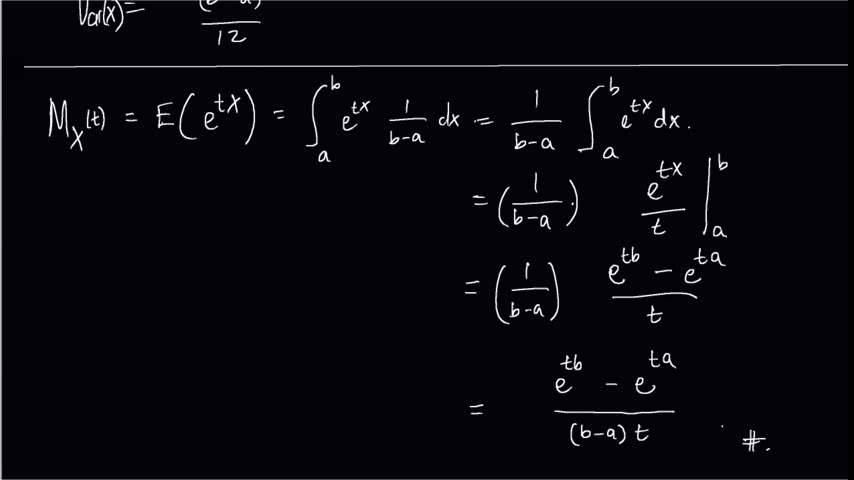 Var(x) = (b-a) / 12
M_X(t) = E(e^{tX}) = ∫_a^b e^{tx} 1/(b-a) dx = 1/(b-a) ∫_a^b e^{tx} dx.
= (1/(b-a)) e^{tx}/t |_a^b
= (1/(b-a)) (e^{tb} - e^{ta})/t
= (e^{tb} - e^{ta})/((b-a)t) #.